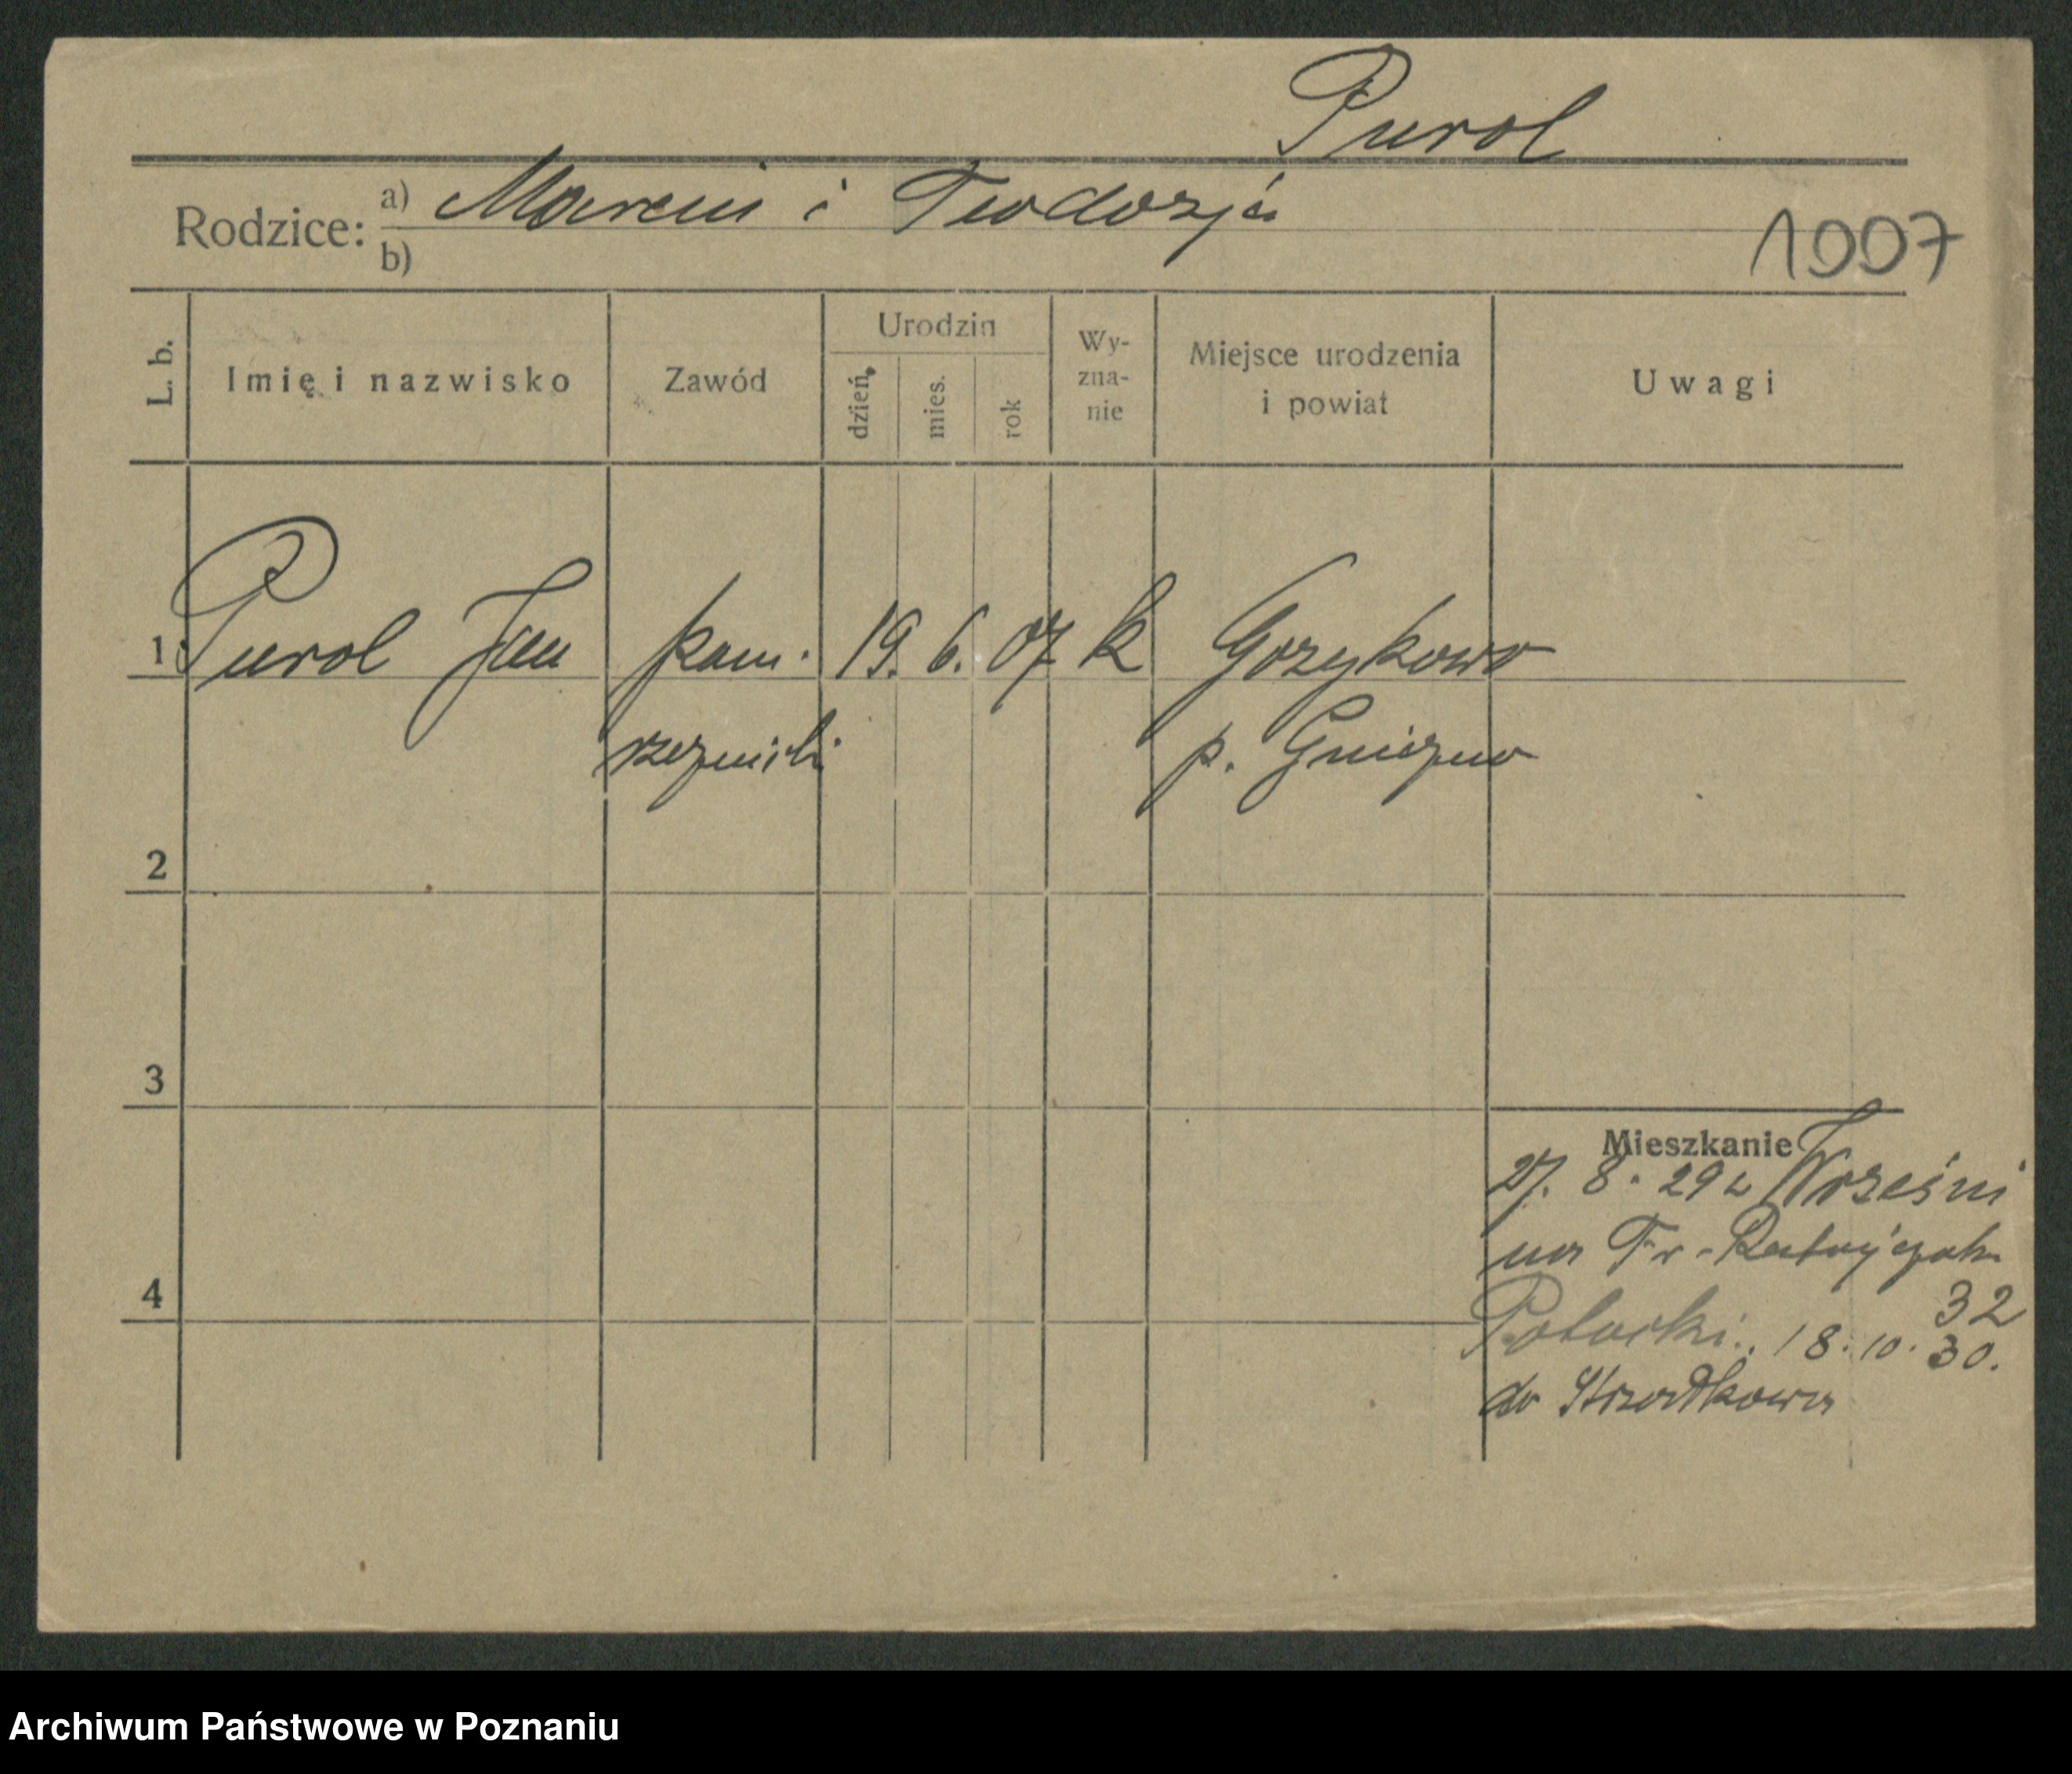 Purol
Rodzice: a) Marcin i Teodozja
b)
1007
L. b.
Imię i nazwisko
Zawód
Urodzin
dzień
mies.
rok
Wy-
zna-
nie
Miejsce urodzenia
i powiat
Uwagi
1 Purol Jan pom. 19. 6. 07 k Gozykowo
rzeznicki p. Gniezno
2
3
4
Mieszkanie
27. 8. 29 z Wrześni
na Fr. Ratajczak
32
18. 10. 30.
do Strzałkowa
Archiwum Państwowe w Poznaniu